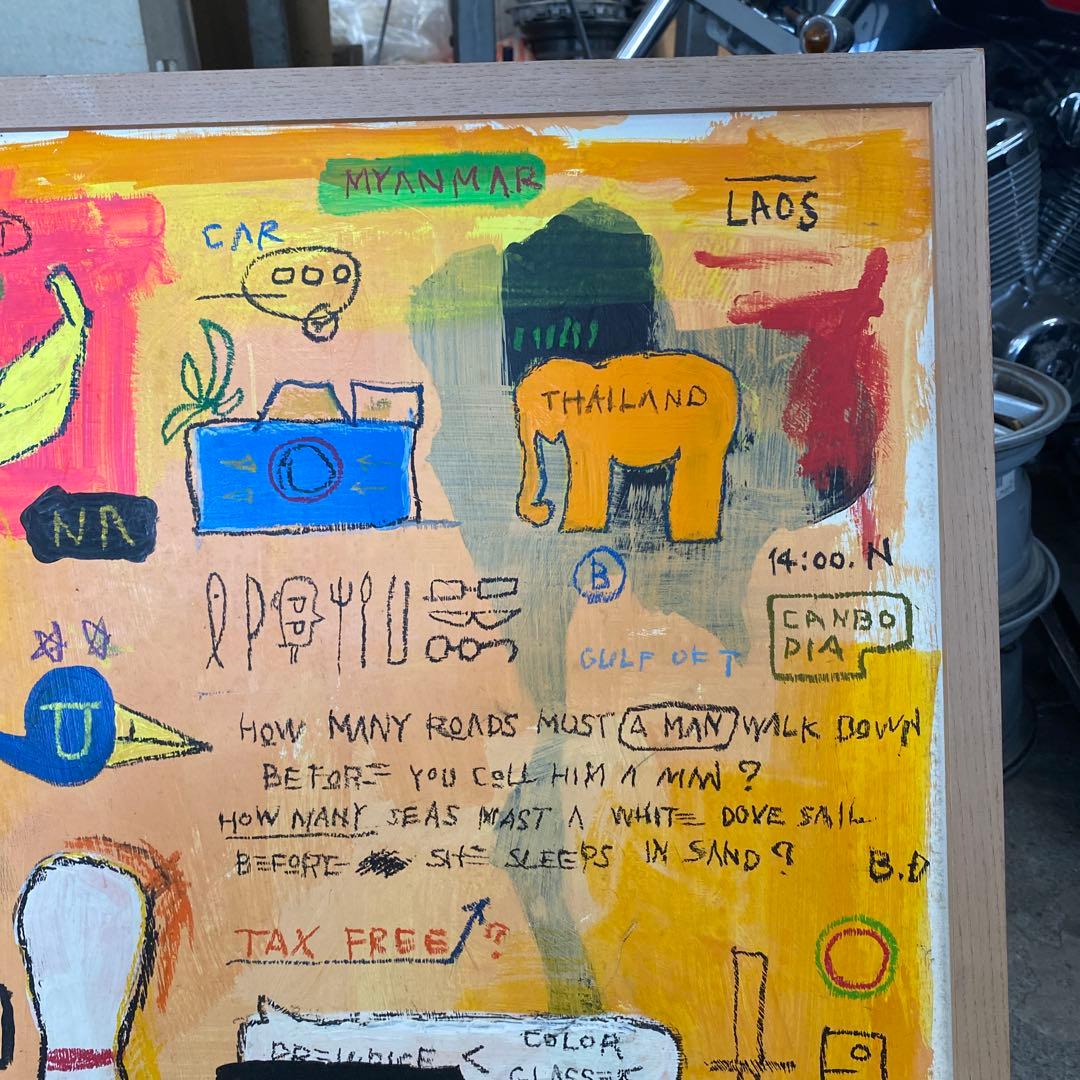 MYANMAR
LAOS
CAR
THAILAND
NA
14:00. N
B
CANBO
DIA
GULF OF T
U
HOW MANY ROADS MUST A MAN WALK DOWN
BEFORE YOU COLL HIM A MAN ?
HOW NANY SEAS MAST A WHITE DOVE SAIL
BEFORE SHE SLEEPS IN SAND ?
B.D
TAX FREE ?
PREJUDICE < COLOR
GLASSES